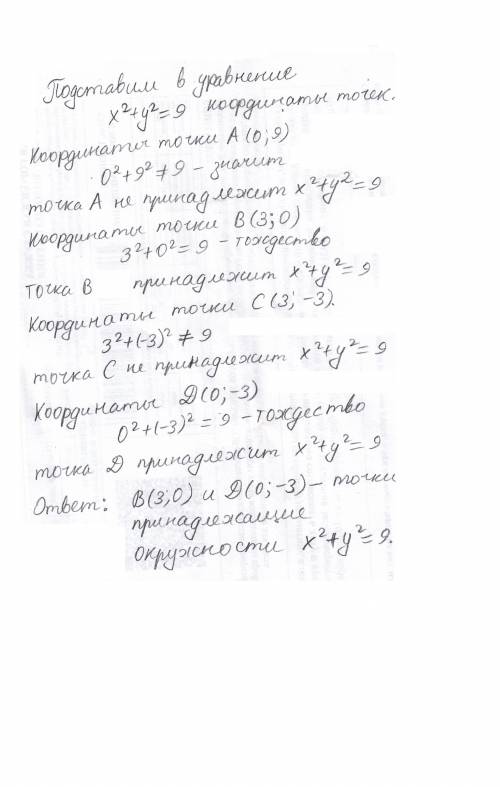 Подставим в уравнение
x²+y²=9 координаты точек.
Координаты точки A(0; 9)
0²+9²≠9 – значит
точка A не принадлежит x²+y²=9
Координаты точки B(3; 0)
3²+0²=9 – тождество
точка B принадлежит x²+y²=9
Координаты точки C(3; -3).
3²+(-3)²≠9
точка C не принадлежит x²+y²=9
Координаты D(0; -3)
0²+(-3)²=9 – тождество
точка D принадлежит x²+y²=9
Ответ: B(3; 0) и D(0; -3) – точки
принадлежащие
окружности x²+y²=9.